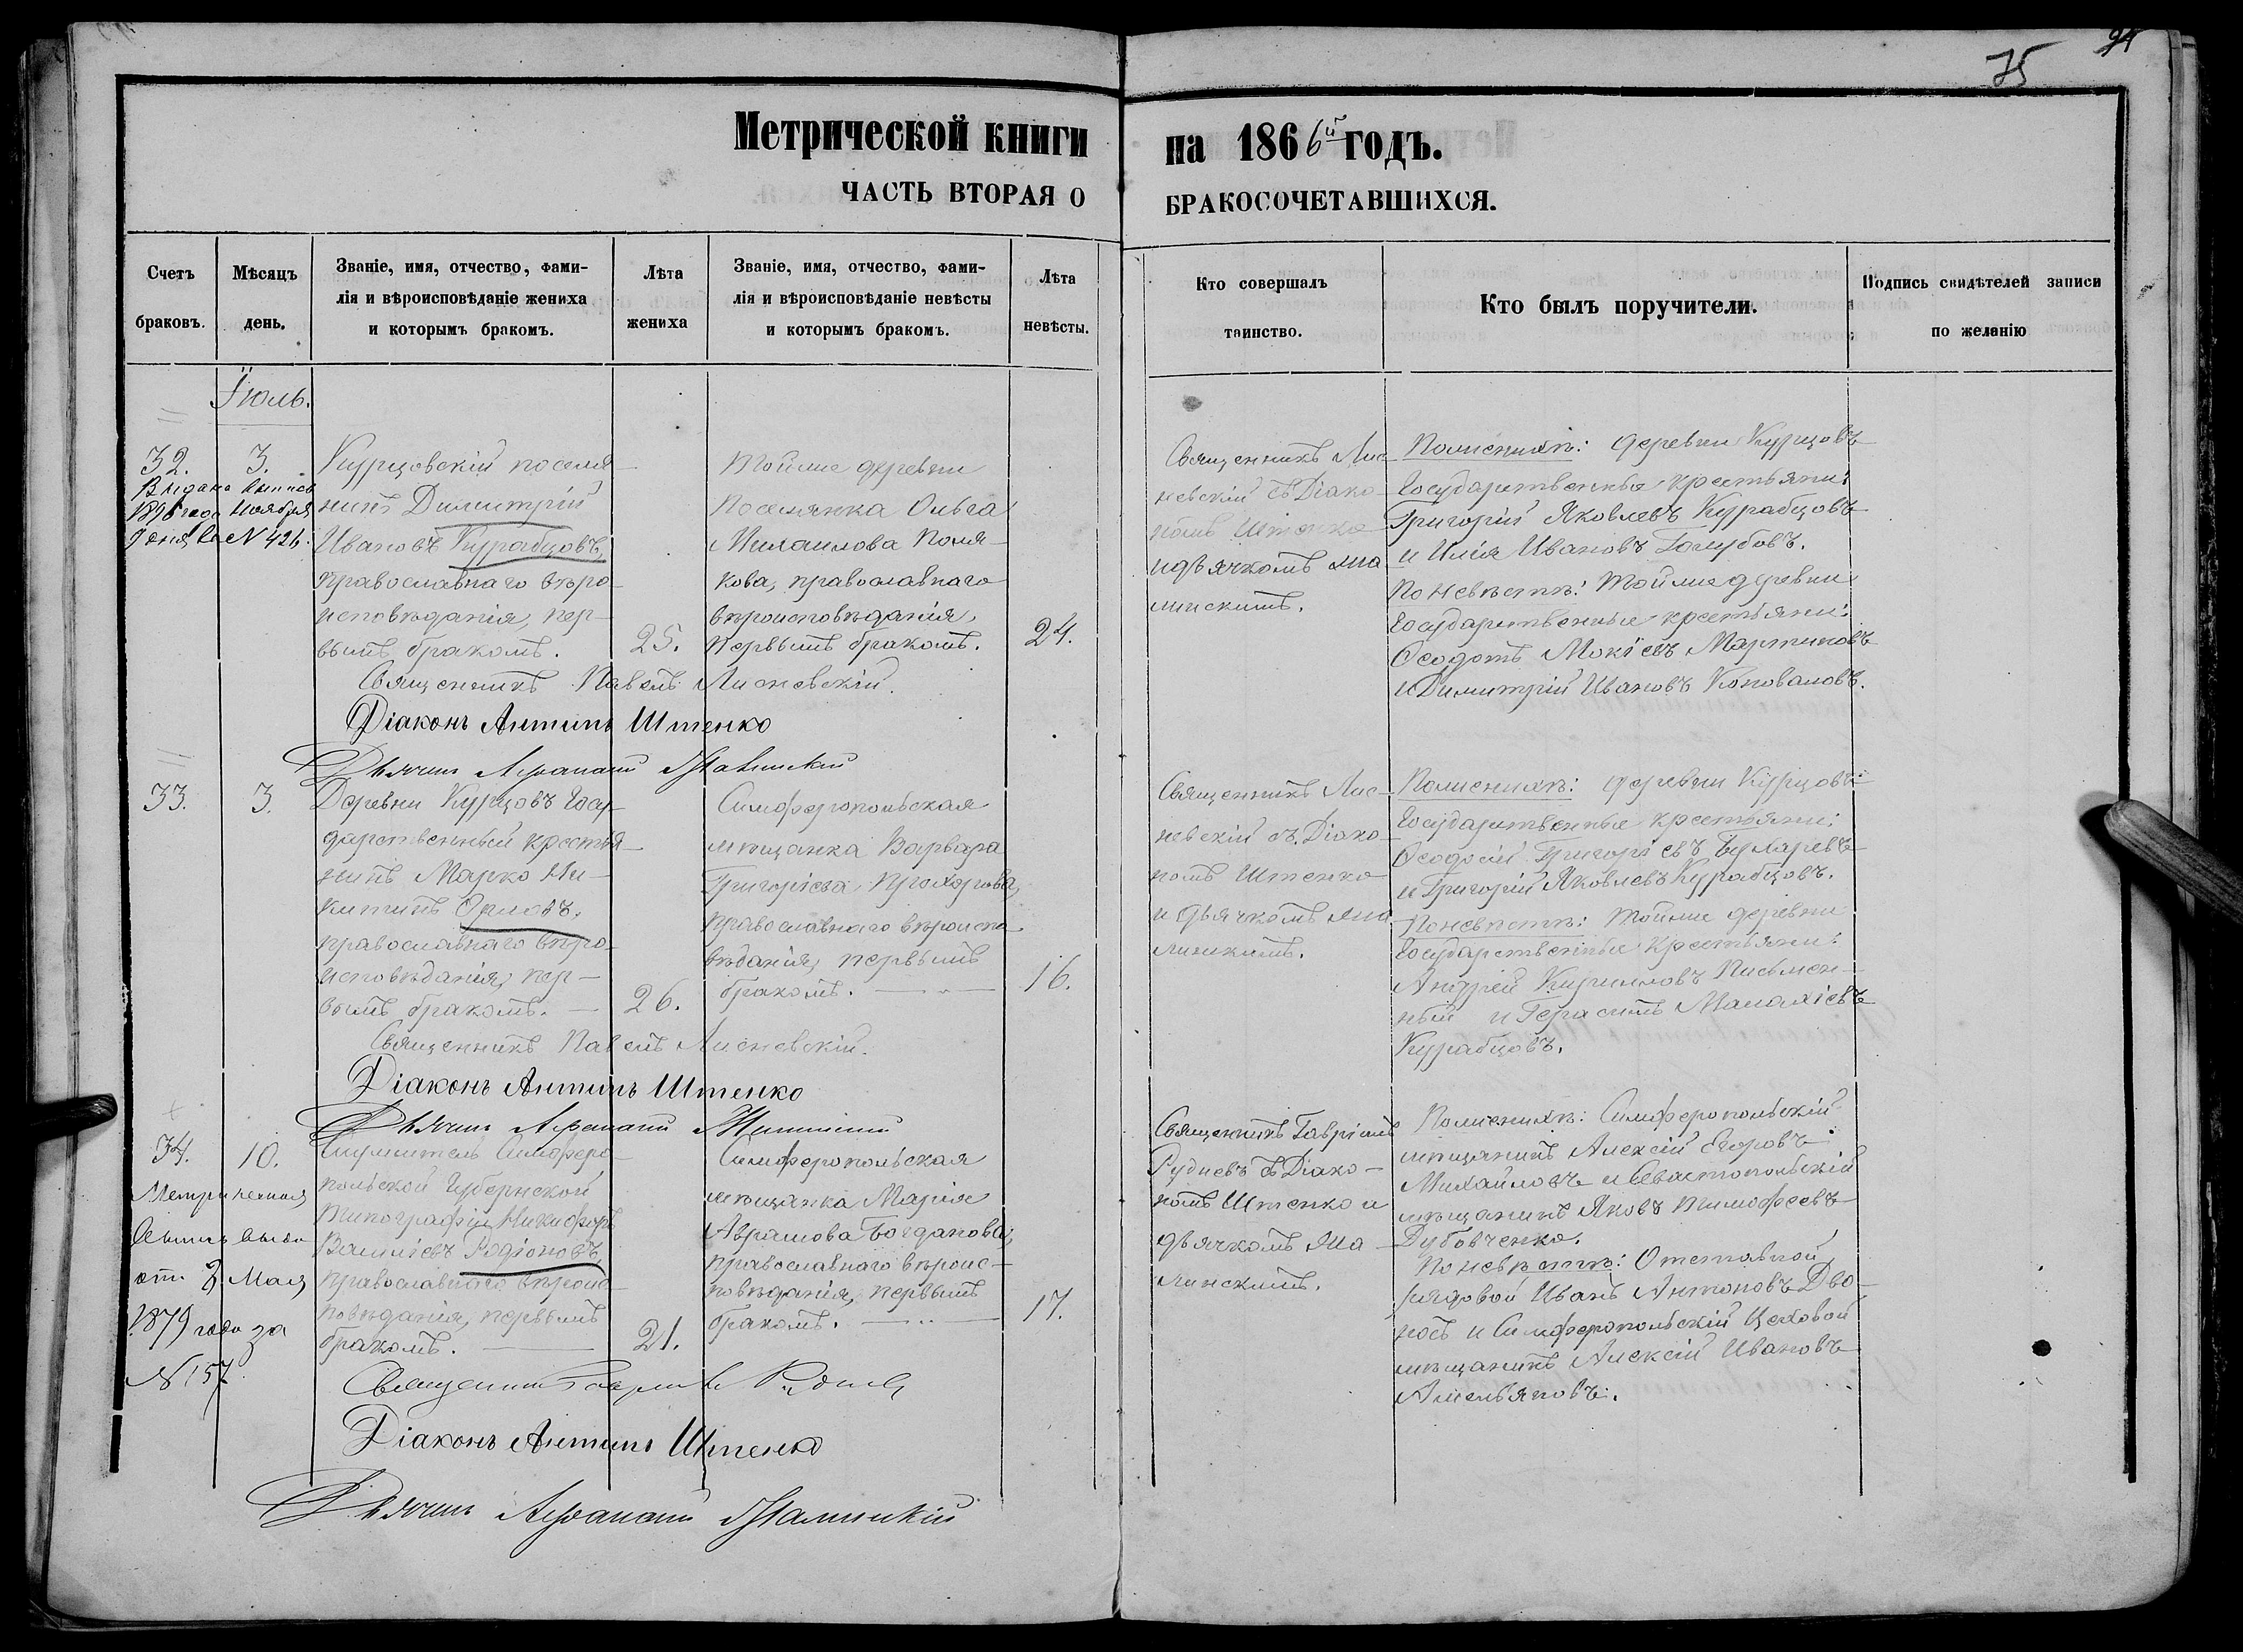 75
94
Метрической книги на 1866й годъ.
ЧАСТЬ ВТОРАЯ О БРАКОСОЧЕТАВШИХСЯ.
Счетъ браковъ.
Мѣсяцъ день.
Званіе, имя, отчество, фами-
лія и вѣроисповѣданіе жениха
и которымъ бракомъ.
Лѣта
жениха
Званіе, имя, отчество, фами-
лія и вѣроисповѣданіе невѣсты
и которымъ бракомъ.
Лѣта
невѣсты.
Кто совершалъ
таинство.
Кто былъ поручители.
Подпись свидѣтелей записи
по желанію
Іюль.
32.
3.
Выдана
1896 года Ноября
№ 426.
Курцовскій поселя-
нинъ Димитрій
Ивановъ Курабцовъ,
православнаго вѣро-
исповѣданія, пер-
вымъ бракомъ.
25.
Тойже деревни
Поселянка Ольга
Михаилова Поля-
кова, православнаго
вѣроисповѣданія,
первымъ бракомъ.
24.
Священникъ Лис-
невскій съ Діако-
номъ Штенко
и дьячкомъ Жа-
линскимъ.
По женихѣ: деревни Курцовъ
Государственные крестьяни:
Григорій Яковлевъ Курабцовъ
и Илія Ивановъ Голубовъ.
По невѣстѣ: Тойже деревни
Государственные крестьяни:
Ѳеодотъ Мокіевъ Мартиновъ
и Димитрій Ивановъ Коноваловъ.
Священникъ Павелъ Лисневскій.
Діаконъ Антипъ Штенко
33.
3.
Деревни Курцовъ Госу-
дарственный крестья-
нинъ Марко Ни-
китинъ Орловъ,
православнаго вѣро-
исповѣданія, пер-
вымъ бракомъ.
26.
Симферопольская
мѣщанка Варвара
Григоріева Прохорова,
православнаго вѣроиспо-
вѣданія, первымъ
бракомъ.
16.
Священникъ Лис-
невскій съ Діако-
номъ Штенко
и дьячкомъ Жа-
линскимъ.
По женихѣ: деревни Курцовъ
Государственные крестьяни:
Ѳеодосій Григоріевъ
и Григорій Яковлевъ Курабцовъ.
По невѣстѣ: Тойже деревни
Государственные крестьяни:
Андрей Кирилловъ Письмен-
ный и Герасимъ Малахіевъ
Курабцовъ.
Священникъ Павелъ Лисневскій.
Діаконъ Антипъ Штенко
34.
10.
от 8 Мая
1879 года за
№ 157
Служитель Симферо-
польской Губернской
Типографіи Никифоръ
Василіевъ Родіоновъ,
православнаго вѣроис-
повѣданія, первымъ
бракомъ.
21.
Симферопольская
мѣщанка Марія
Аврамова Богданова,
православнаго вѣроис-
повѣданія, первымъ
бракомъ.
17.
Священникъ Гавріилъ
Рудневъ съ Діако-
номъ Штенко и
дьячкомъ Жа-
линскимъ.
По женихѣ: Симферопольскій
мѣщанинъ Алексій Егоровъ
Михайловъ и Севастопольскій
мѣщанинъ Яковъ Тимофеевъ
Дубовченко.
По невѣстѣ: Отставной
рядовой Иванъ Антоновъ Дво-
носъ и Симферопольскій Цеховой
мѣщанинъ Алексій Ивановъ
Амельяновъ.
Священникъ Гавріилъ Рудневъ
Діаконъ Антипъ Штенко